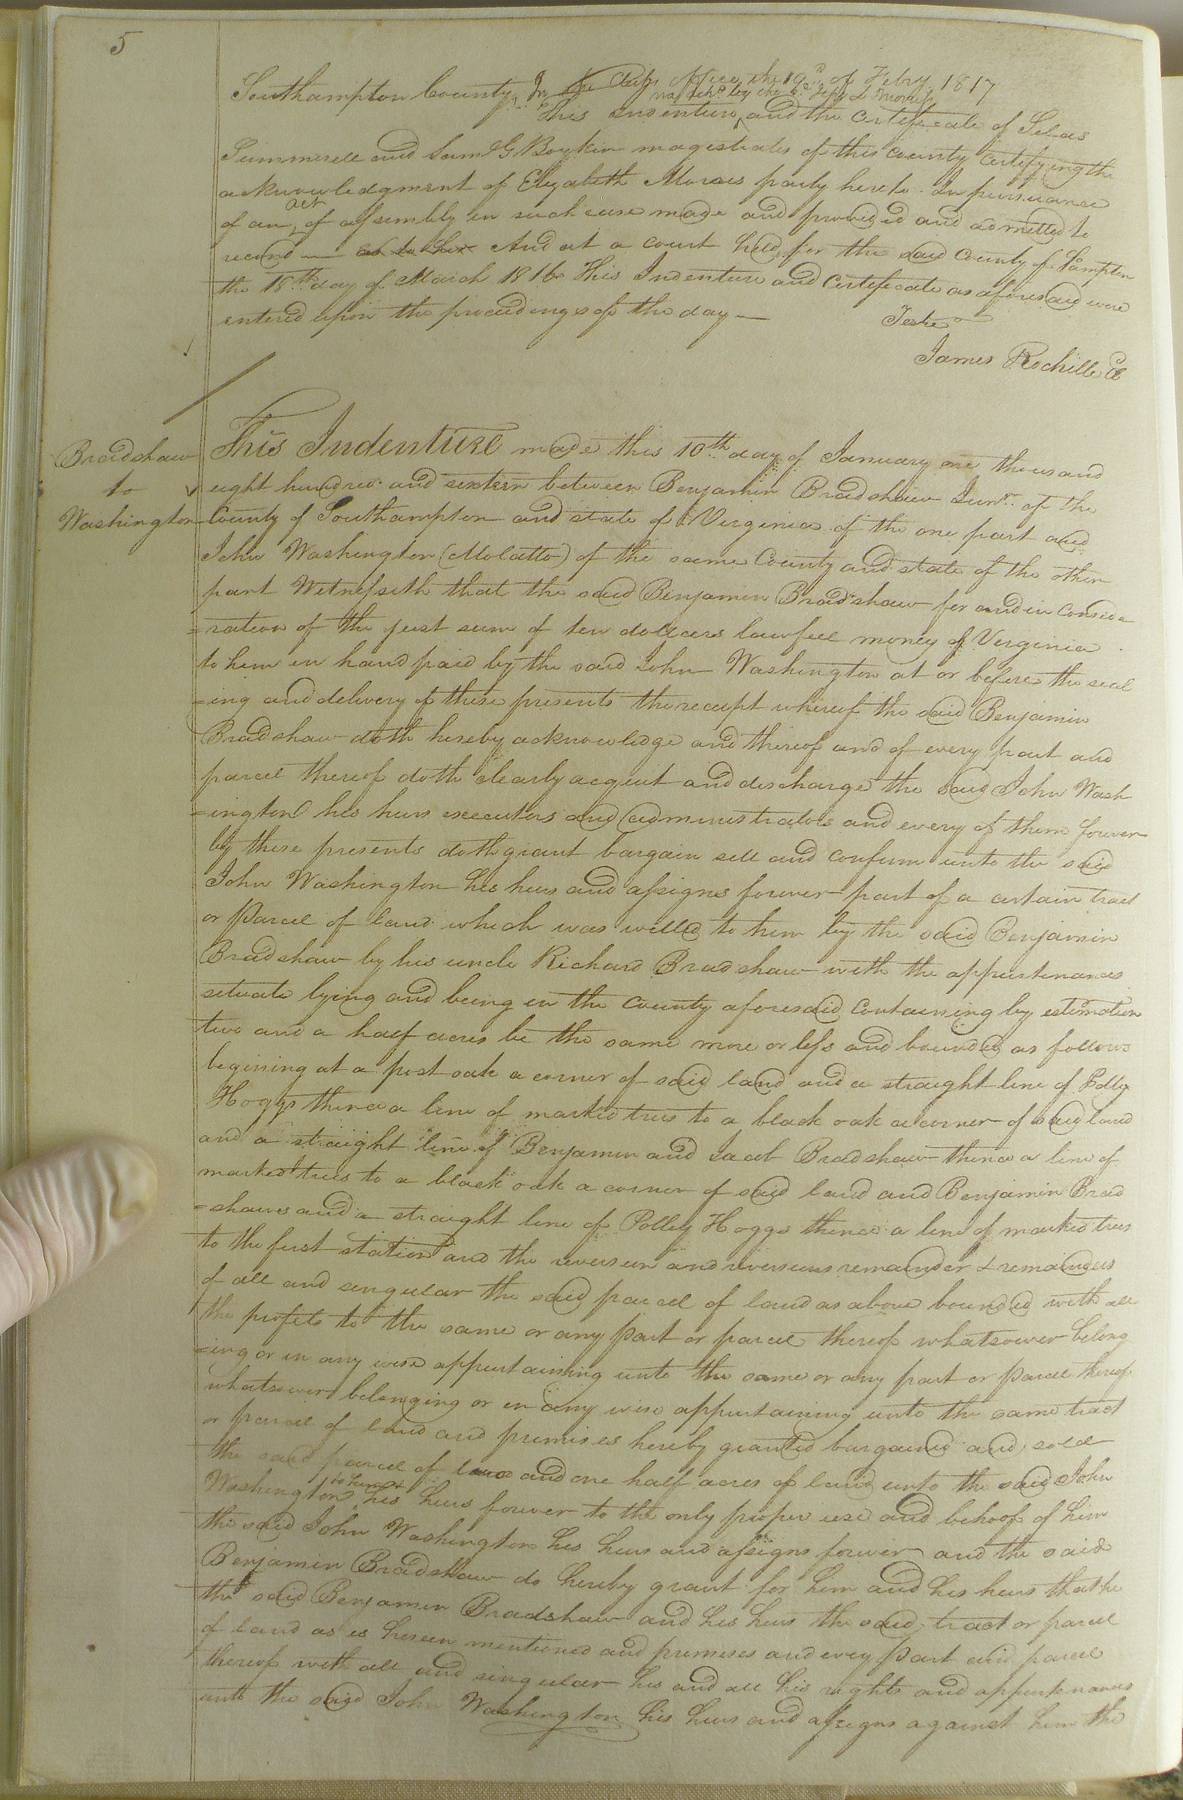 5
Southampton County In the Clks office the 19th of Febry 1817
This Indenture and the Certificate of Silas
Summerell and Saml G Boykin magistrates of this county certifying the
acknowledgment of Elizabeth Moraes party hereto In pursuance
of an act of assembly in such case made and provided and admitted to
record — as to her And at a court held for the said County of Sampton
the 18th day of March 1816 This Indenture and Certificate as aforesaid were
entered upon the proceedings of the day —
Teste
James Rochelle C
Bradshaw
to
Washington
This Indenture made this 10th day of January one thousand
eight hundred and sixteen between Benjamin Bradshaw Junr. of the
County of Southampton and state of Virginia of the one part and
John Washington (Molatto) of the same County and state of the other
part Witnesseth that the said Benjamin Bradshaw for and in conside
=ration of the just sum of ten dollars lawfull money of Virginia
to him in hand paid by the said John Washington at or before the seal
=ing and delivery of these presents the receipt whereof the said Benjamin
Bradshaw doth hereby acknowledge and thereof and of every part and
parcel thereof doth clearly acquit and discharge the said John Wash
=ington his heirs executors and administrators and every of them forever
by these presents doth grant bargain sell and confirm unto the said
John Washington his heirs and assigns forever part of a certain tract
or Parcel of land which was willed to him by the said Benjamin
Bradshaw by his uncle Richard Bradshaw with the appurtenances
situate lying and being in the County aforesaid Containing by estimation
two and a half acres be the same more or less and bounded as follows
begining at a post oak a corner of said land and a straight line of Polly
Hoggs thence a line of marked trees to a black oak a corner of said land
and a straight line of Benjamin and Jacob Bradshaw thence a line of
marked trees to a black oak a corner of said land and Benjamin Brad
=shaws and a straight line of Polley Hoggs thence a line of marked trees
to the first station and the reversion and reversions remainder & remainders
of all and singular the said parcel of land as above bounded with all
the profits to the same or any part or parcel thereof whatsoever belong
=ing or in any wise appurtaining unto the same or any part or parcel thereof
whatsoever belonging or in any wise appurtaining unto the same tract
or parcel of land and premises hereby granted bargained and sold
the said parcel of land and one half acres of land unto the said John
Washington to him & his heirs forever to the only proper use and behoof of him
the said John Washington his heirs and assigns forever and the said
Benjamin Bradshaw do hereby grant for him and his heirs that he
the said Benjamin Bradshaw and his heirs the said tract or parcel
of land as is herein mentioned and premises and every part and parcel
thereof with all and singular his and all his rights and appurtenances
unto the said John Washington his heirs and assigns against him the